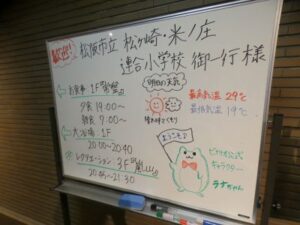 歓迎!
松阪市立 松ヶ崎・米ノ庄
連合小学校 御一行様
お食事 1F
夕食 19:00〜
朝食 7:00〜
大浴場 1F
20:00〜20:40
レクリエーション 3F
20:45〜21:30
明日の天気
最高気温 29℃
最低気温 19℃
ようこそ♪
公式
キャラクター
ラナちゃん